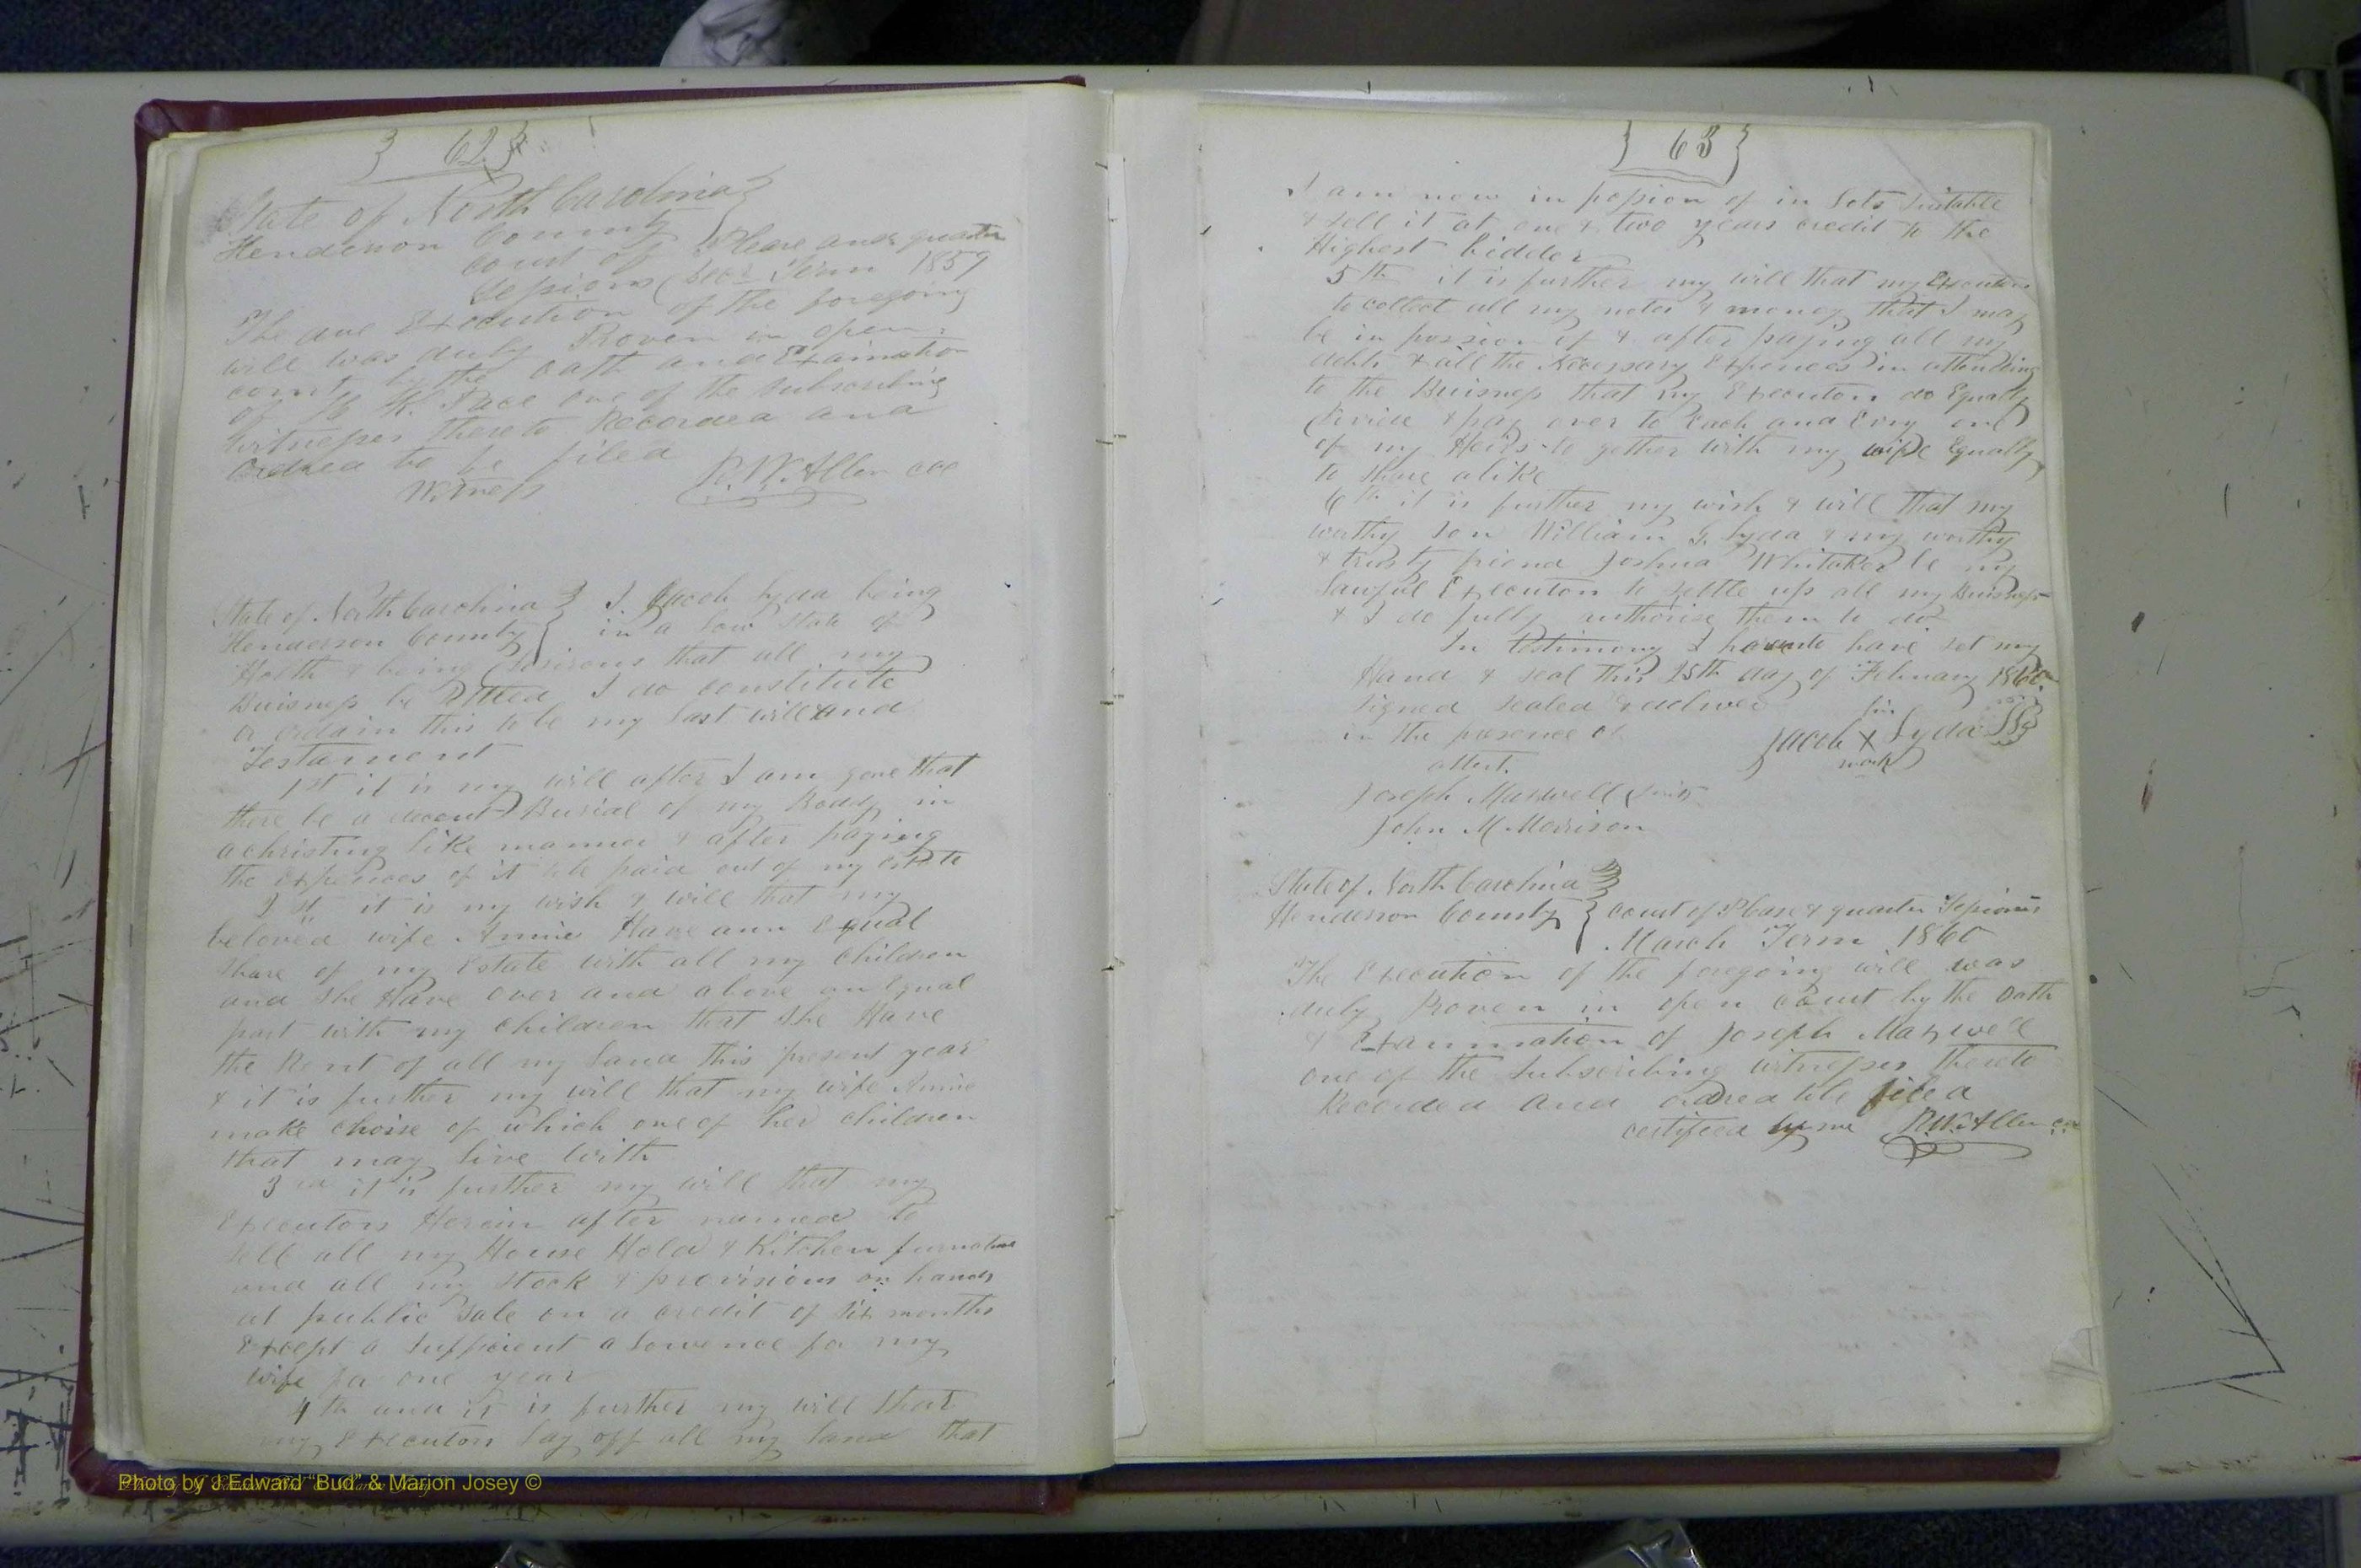 } 62 }
State of North Carolina }
Henderson County } Court of Pleas and quarter
Sessions Decr Term 1859
The due Execution of the foregoing
will was duly Proven in open
court by the oath and Examination
of K. Pace one of the subscribing
witnesses thereto Recorded and
ordred to be filed
Witness R. W. Allen CCC
State of North Carolina } I. Jacob Lyda being
Henderson County } in a low State of
Health & being desirous that all my
Buisness be settled I do constitute
or ordain this to be my last will and
Testament
1st it is my will after I am gone that
there be a decent Burial of my Body in
a christing like manner & after paying
the expences of it to be paid out of my estate
2st it is my wish & will that my
beloved wife Annie Have ann Equal
share of my Estate with all my children
and she Have over and above an Equal
part with my children that she Have
the Rent of all my land this present year
& it is further my will that my wife Annie
make choise of which one of her children
that may live with
3rd it is further my will that my
Executors Herein after named to
sell all my House Hold & Kitchen furnature
and all my stock & provisions on hands
at public sale on a credit of six months
Except a sufficient alowence for my
wife for one year
4th and it is further my will that
my Executors lay off all my land that
} 63 }
I am now in possion of in lots suitable
& sell it at one & two years credit to the
Highest bidder
5th it is further my will that my Executors
to collect all my notes & money that I may
be in possion of & after paying all my
debts & all the Necessary Expences in attending
to the Buisness that my Executors do Equally
divide & pay over to Each and Evry one
of my Heirs to gether with my wife Equally
to share alike
6th it is further my wish & will that my
worthy son William G. Lyda & my worthy
& trusty friend Joshua Whitaker be my
lawful Executors to settle up all my Buisness
& I do fully authorise them to do
In Testimony I haunto have set my
Hand & seal this 25th day of February 1860
signed sealed & delived his
in the presence of Jacob X Lyda
attest. mark
Joseph Maxwell
John M. Morrison
State of North Carolina }
Henderson County } Court of Pleas & quarter Sessions
March Term 1860
The Execution of the foregoing will was
duly Proven in open Court by the oath
& Examination of Joseph Maxwell
one of the subscribing witnesses thereto
Recorded and ordred to be filed
certified by me R. W. Allen
Photo by J Edward “Bud” & Marion Josey ©